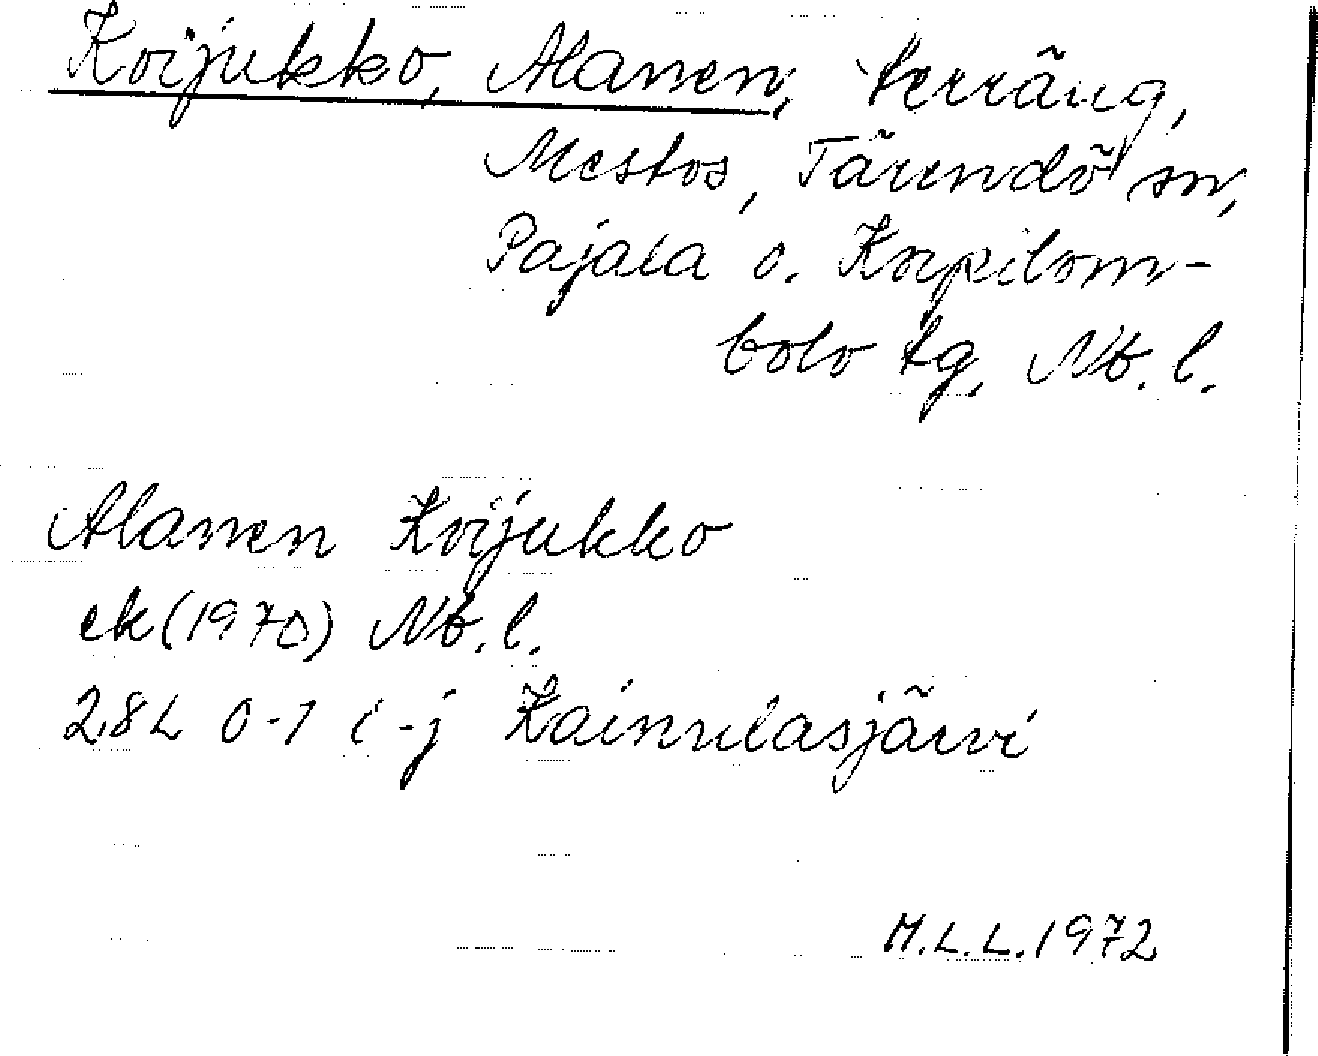 Koijukko, Alanen, terräng,
Mestos, Tärendö sn,
Pajala o. Korpilom-
bolo tg, Nb. l.
Alanen Koijukko
ek(1970) Nb. l.
28L 0-1 i-j Kainulasjärvi
M.L.L. 1972